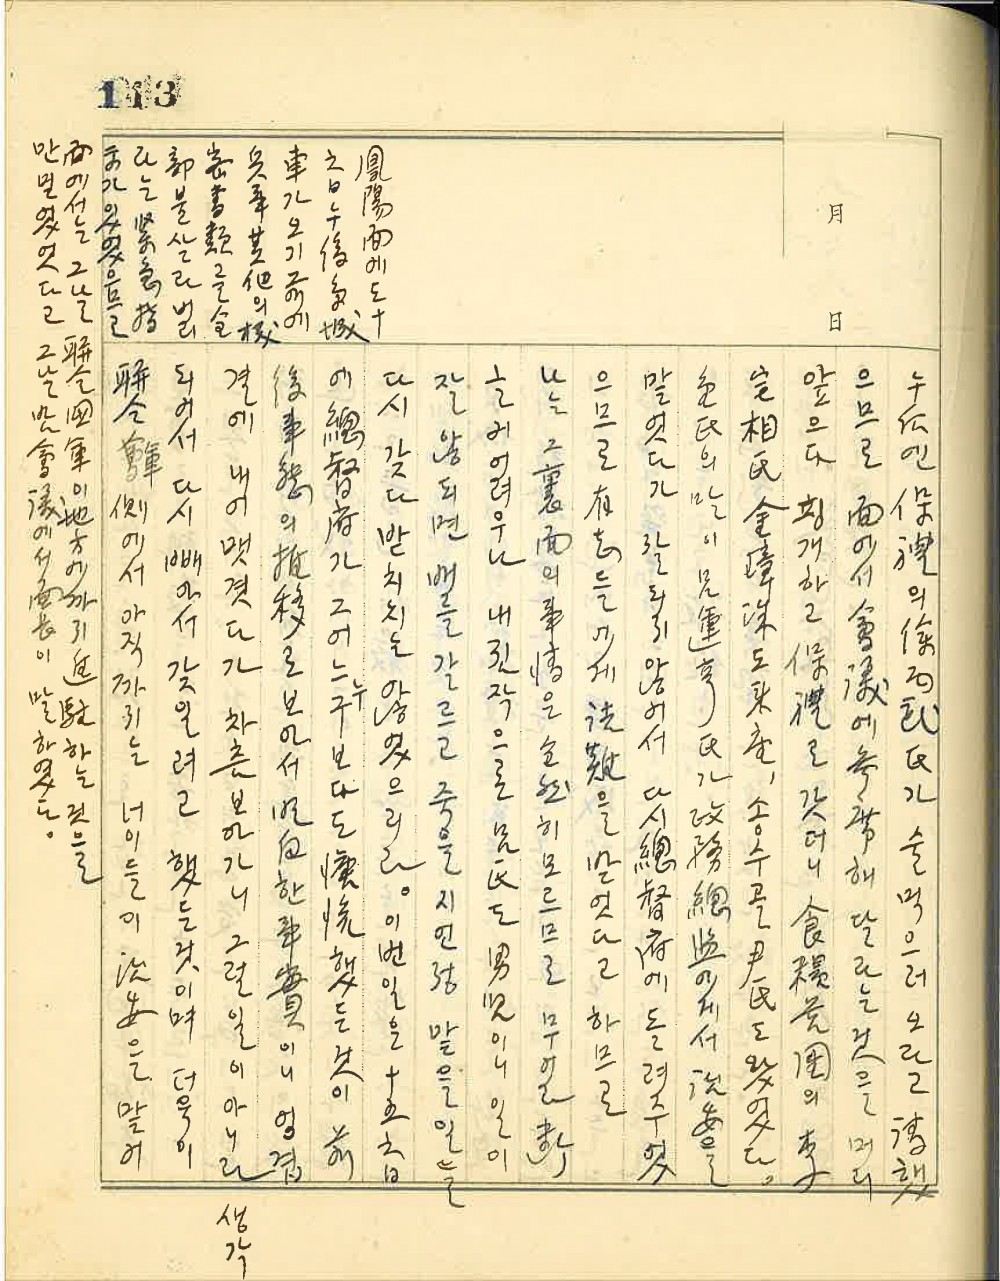 113
月
日
누么엔 保禮의 徐丙武氏가 술먹으러 오라고 請했
으므로 面에서 會議에 參席해 달라는 것을 머리
앞으다 핑개하고 保禮로 갓더니 食糧營團의 李
完相氏 金璋珠도 來查, 송수골 尹氏도 왔었다。
氏의 말이 呂運亨氏가 政務總監에게서 治安을
말엇다가 잘되지 않어서 다시 總督府에 돌려주었
으므로 有志들에게 詰難을 받엇다고 하므로
나는 그 裏面의 事情은 全然히 모르므로 무어라 斷
늘키어려우나 내짐작으로는 呂氏도 男兒이니 일이
잘 않되면 배를 갈르고 죽을지언정 말을 일을
다시 갖다 받치지는 않었으리라。 이번일은 十五六日
에 總督府가 그어느누구보다도 慌惚했든 것이 前
後事態의 推移로 보아서 明白한 事實이니 엉겁
결에 내어 맷겻다가 차츰 보아가니 그럴일이 아니라 생각
되어서 다시 빼아서 갖일려고 했든것이며 더욱이
聯合軍側에서 아직까지는 너이들이 治安을 말어
鳳陽面에도 十
六日 午後 鳥城
車가 오기 前에
兵事 其他의 機
密書類를 全
部 불살라 벌
라는 緊急指
令가 있었으므로
面에서는 그날 聯合國軍이 地方에까지 進駐하는 것으로
만 믿었엇다고 그날 밤 會議에서 面長이 말하였다。